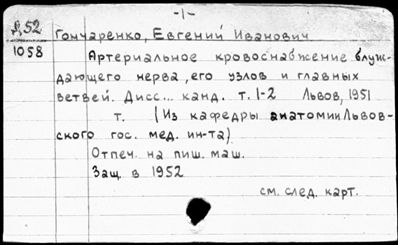 -1-
Д52
1058
Гончаренко, Евгений Иванович
Артериальное кровоснабжение блуж-
дающего нерва, его узлов и главных
ветвей. Дисс... канд. т. 1-2 Львов, 1951
т. (Из кафедры анатомии Львов-
ского гос. мед. ин-та)
Отпеч. на пиш. маш.
Защ. в 1952
см. след. карт.